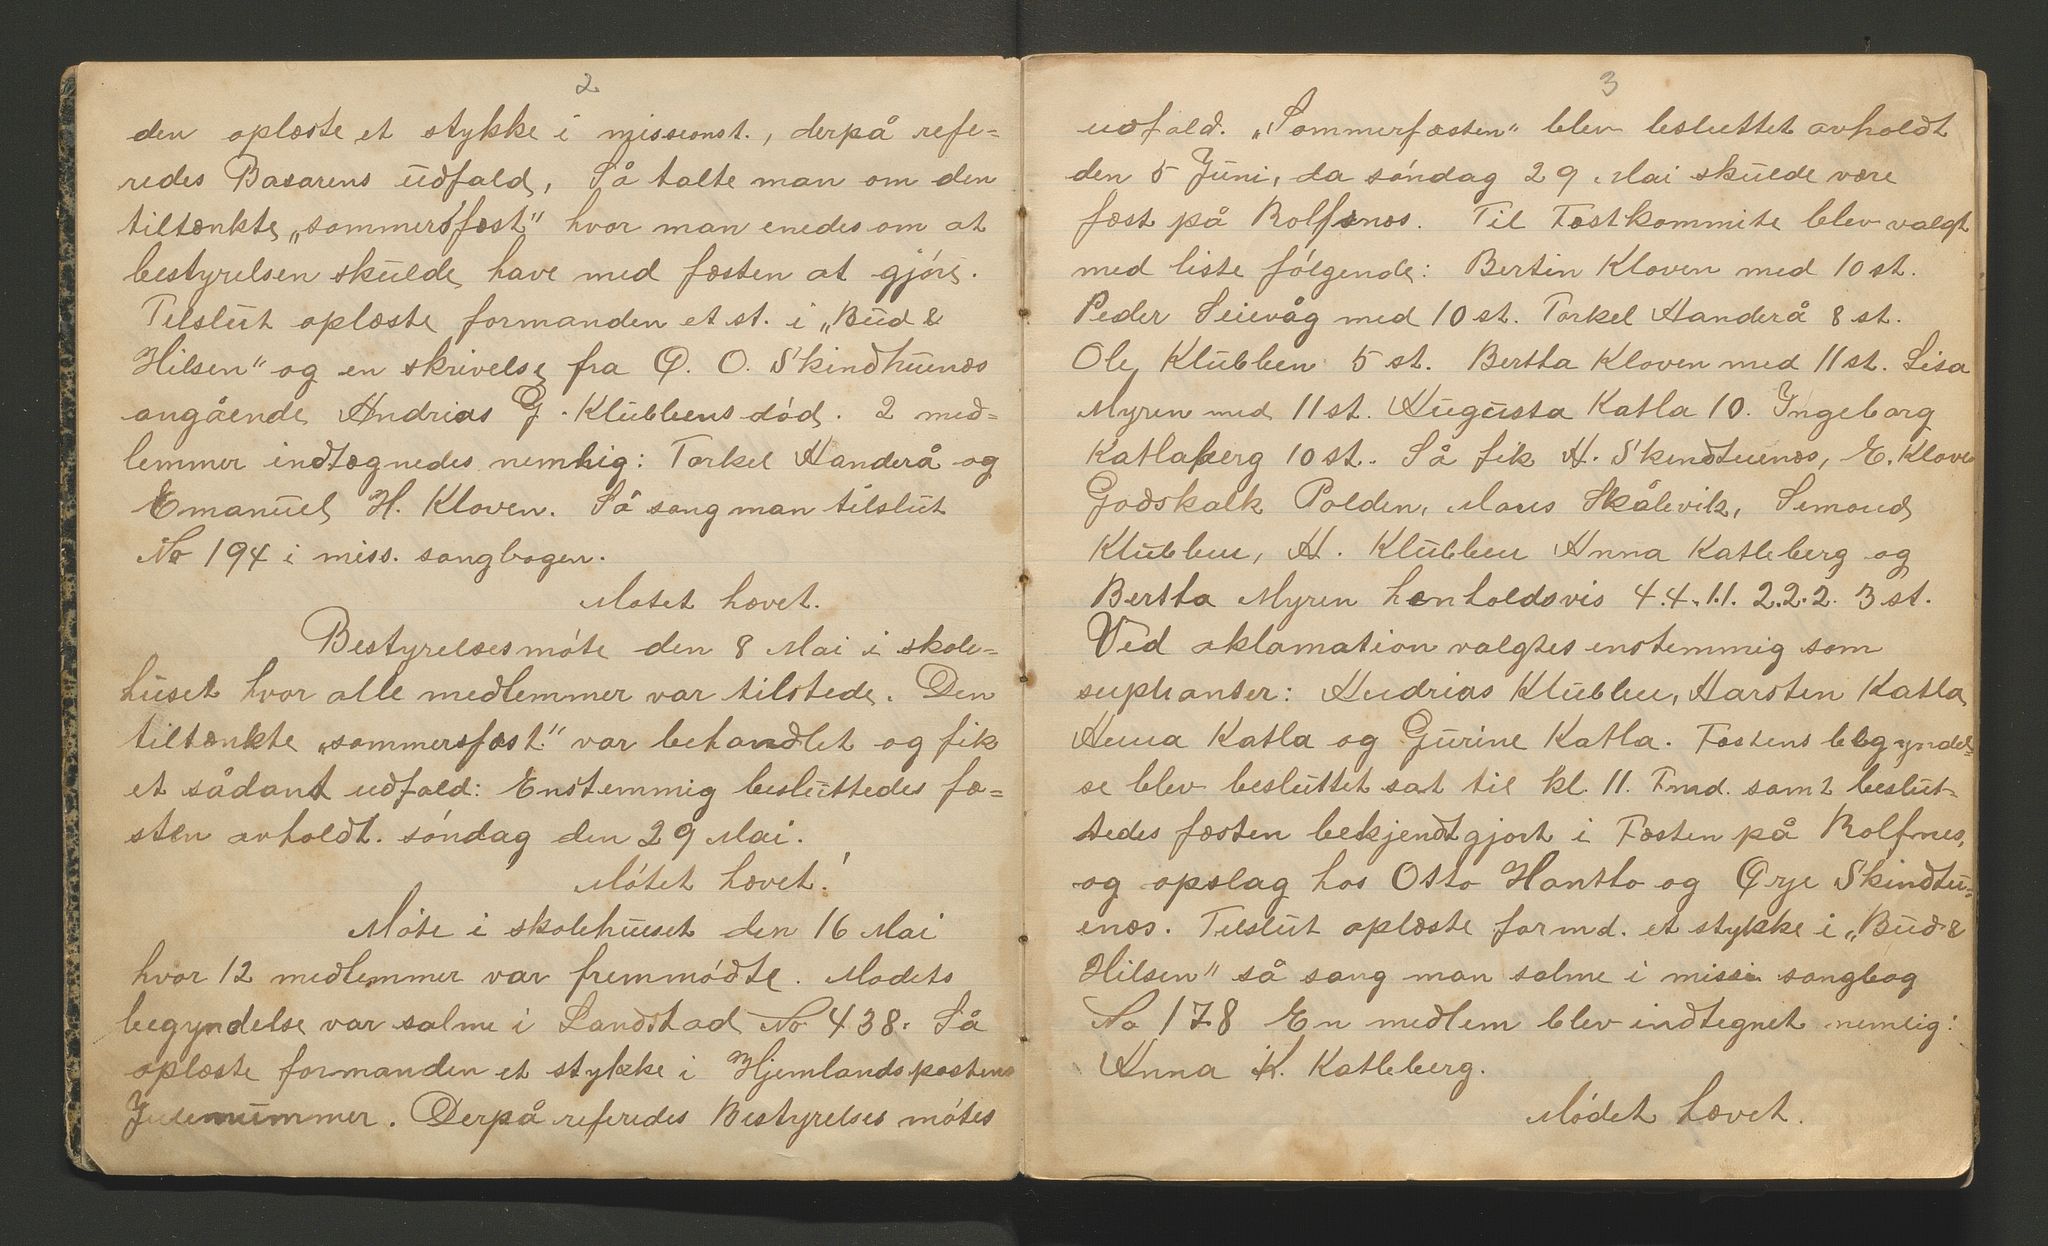 2
den oplæste et stykke i missionst., derpå refe=
redes Basarens udfald, Så talte man om den
tiltænkte „sommersfæst" hvor man enedes om at
bestyrelsen skulde have med fæsten at gjöre.
Tilslut oplæste formanden et st. i „Bud &
Hilsen" og en skrivelse fra Ø. O. Skindtuenæs
angående Andrias G. Klubbens död. 2 med=
lemmer indtægnedes nemlig: Torkel Handerå og
Emanuel H. Kloven. Så sang man tilslut
No 194 i miss. sangbogen.
Møtet hævet.
Bestyrelsesmöte den 8 Mai i skole=
huset hvor alle medlemmer var tilstede. Den
tiltænkte „sommersfæst" var behandlet og fik
et sådant udfald: Enstemmig besluttedes fæ=
sten avholdt söndag den 29 Mai.
Mötet hævet!
Möte i skolehuset den 16 Mai
hvor 12 medlemmer var fremmödte. Modets
begyndelse var salme i Landstad No 438. Så
oplæste formanden et stykke i Hjemlandspostens
Julenummer. Derpå referedes Bestyrelses mötes
3
udfald. „Sommerfæsten" blev besluttet avholdt
den 5 Juni, da söndag 29 Mai skulde være
fæst på Rolfsnæs. Til Fæstkommite blev valgt
med liste fölgende: Bertin Kloven med 10 st.
Peder Seievåg med 10 st. Torkel Handerå 8 st.
Ole Klubben 5 st. Bertha Kloven med 11 st. Lisa
Myren med 11 st. Augusta Katla 10. Ingeborg
Katlaberg 10 st. Så fik H. Skindtuenæs, E. Kloven
Godskalk Polden, Mons Skålevik, Semond
Klubben, H. Klubben Anna Katleberg og
Bertha Myren henholdsvis 4.4.1.1. 2.2.2. 3 st.
Ved aklamation valgtes enstemmig som
suplianter: Andrias Klubben, Karsten Katla
Anna Katla og Gurine Katla. Fæstens begyndel=
se blev besluttet sat til kl. 11. Fmd. samt beslut=
tedes fæsten bekjendtgjort i Fæsten på Rolfnes,
og opslag hos Otto Hantho og Ørje Skindtu=
enæs. Tilslut oplæste formd. et stykke i „Bud &
Hilsen" så sang man salme i missi sangbog
No 178 En medlem blev indtegnet nemlig:
Anna K. Katleberg.
Mödet hævet.